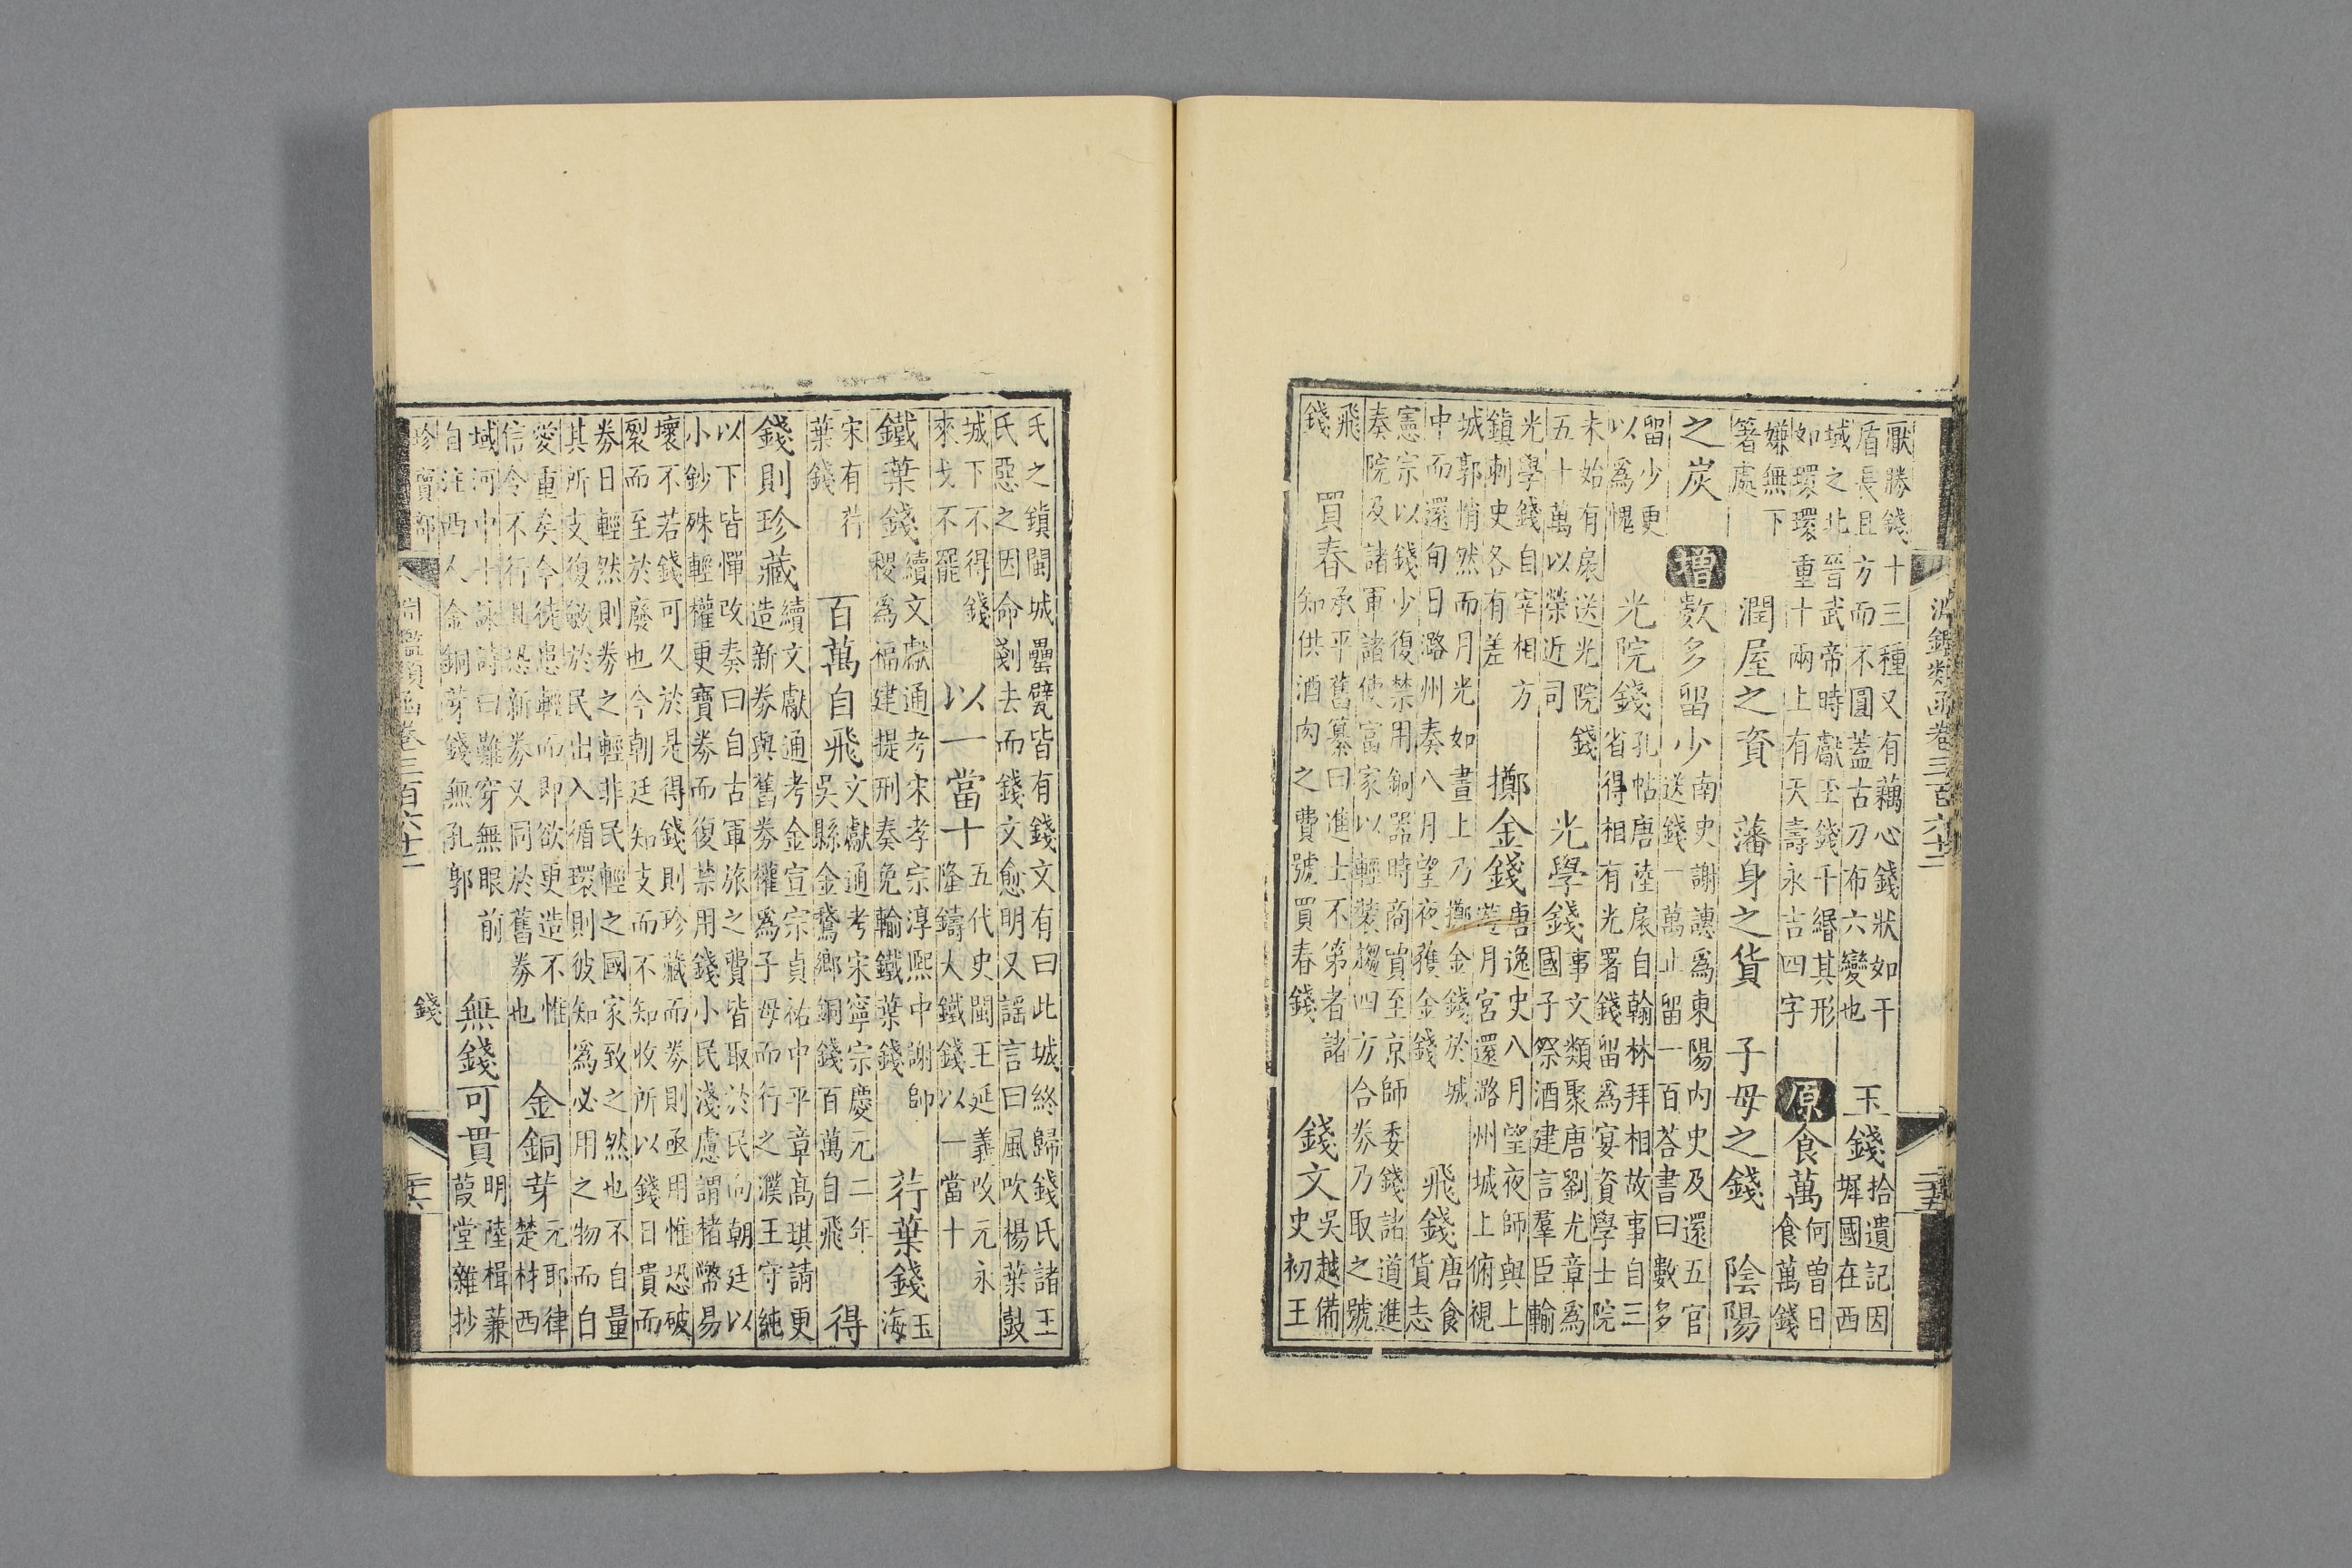 淵鑑類函卷三百六十二
二十五
厭勝錢十三種又有藕心錢狀如干
盾長且方而不圓蓋古刀布六變也
玉錢
拾遺記因
墀國在西
域之北晉武帝時獻玉錢千緡其形
如環環重十兩上有天壽永吉四字
原食萬
何曾日
食萬錢
嫌無下
箸處
潤屋之資 藩身之貨 子母之錢 陰陽
之炭 增數多留少
南史謝譓爲東陽内史及還五官
送錢一萬止留一百荅書曰數多
留少更
以爲愧
光院錢
孔帖唐陸扆自翰林拜相故事自三
省得相有光署錢留爲宴資學士院
未始有扆送光院錢
五十萬以榮近司
光學錢
事文類聚唐劉尤章爲
國子祭酒建言羣臣輸
光學錢自宰相方
鎮刺史各有差
擲金錢
唐逸史八月望夜師與上
遊月宮還潞州城上俯視
城郭悄然而月光如晝上乃擲金錢於城
中而還旬日潞州奏八月望夜獲金錢
飛錢
唐食
貨志
憲宗以錢少復禁用銅器時商賈至京師委錢諸道進
奏院及諸軍諸使富家以輕裝趨四方合券乃取之號
飛
錢
買春
承平舊纂曰進士不第者諸
知供酒肉之費號買春錢
錢文
吳越備
史初王
氏之鎮閩城罍甓皆有錢文有曰此城終歸錢氏諸王
氏惡之因命剗去而錢文愈明又謠言曰風吹楊葉鼓
城下不得錢
來戈不罷
以一當十
五代史閩王延羲改元永
隆鑄大鐵錢以一當十
鐵葉錢
續文獻通考宋孝宗淳熙中謝師
稷爲福建提刑奏免輸鐵葉錢
荇葉錢
玉
海
宋有荇
葉錢
百萬自飛
文獻通考宋寧宗慶元二年
吳縣金鵞鄉銅錢百萬自飛
得
錢則珍藏
續文獻通考金宣宗貞祐中平章高琪請更
造新券與舊券權爲子母而行之濮王守純
以下皆憚改奏曰自古軍旅之費皆取於民向朝廷以
小鈔殊輕權更寶券而復禁用錢小民淺慮謂楮幣易
壞不若錢可久於是得錢則珍藏而券則亟用惟恐破
裂而至於廢也今朝廷知支而不知收所以錢日貴而
券日輕然則券之輕非民輕之國家致之然也不自量
其所支復斂於民出入循環則彼知爲必用之物而自
愛重矣今徒患輕而即欲更造不惟
信令不行且恐新券又同於舊券也
金銅芽
元耶律
楚材西
域河中十詠詩曰難穿無眼前
自注西人金銅芽錢無孔郭
無錢可貫
明陸楫蒹
葭堂雜抄
珍寶部
淵鑑類函卷三百六十二
錢
二十六